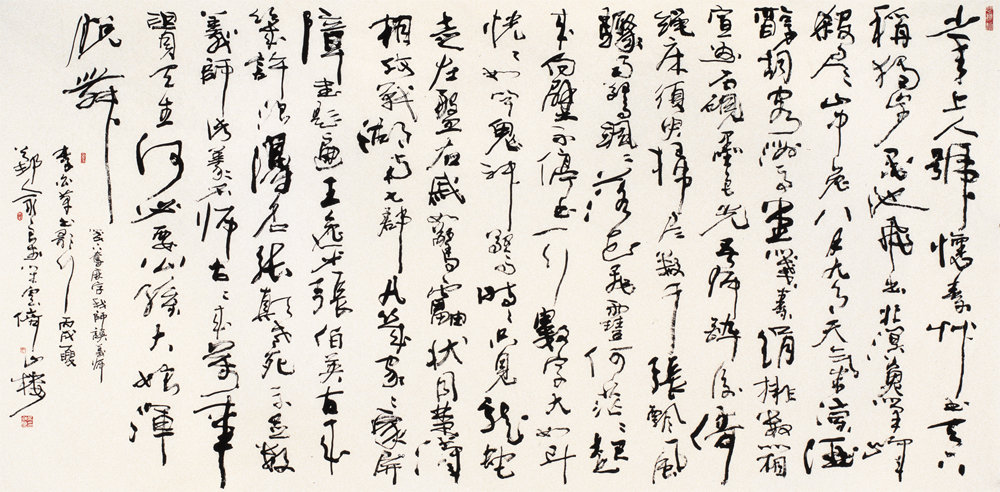 少年上人號懷素艸書天下
稱獨步墨池飛出北溟魚筆鋒
殺尽山中兔八月九月天氣涼酒
詞客滿高堂箋素絹排數箱
宣州石硯墨色光吾師醉後倚
繩床須臾掃尽數千張飄風
驟雨驚颯颯落花飛雪何茫茫起
來向壁不停書一行數字大如斗
恍恍如聞鬼神驚時時只見龍蛇
走左盤右蹙如驚雷狀同楚漢
相攻戰湖南七郡凡幾家家家屏
障書題遍王逸少張伯英古來
幾許浪得名張顛老死不足數
義師此義不師古古來萬事
貴天生何必要公孫大娘渾
脫舞
奪麻字我師誤義師
李白草書歌行 丙戌
鄭 山樓